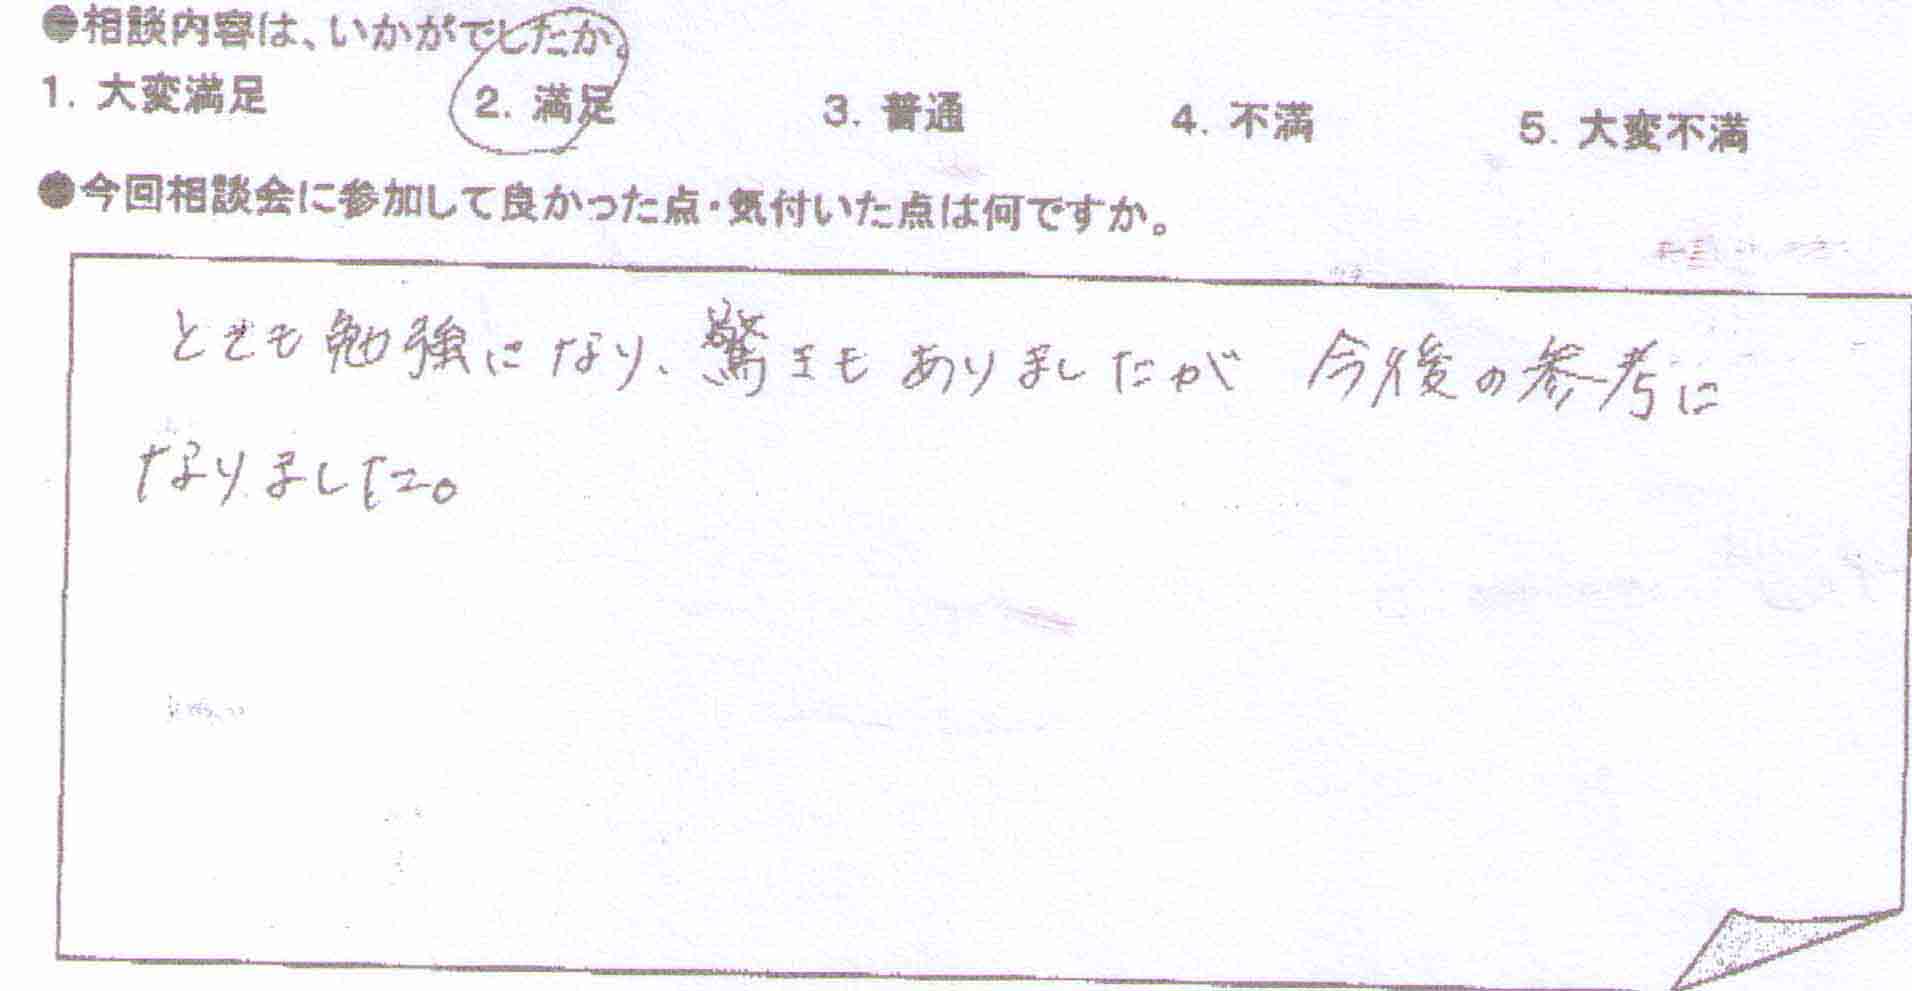 ●相談内容は、いかがでしたか。
1. 大変満足 2. 満足 3. 普通 4. 不満 5. 大変不満
●今回相談会に参加して良かった点・気付いた点は何ですか。
とても勉強になり、驚きもありましたが 今後の参考に
なりました。